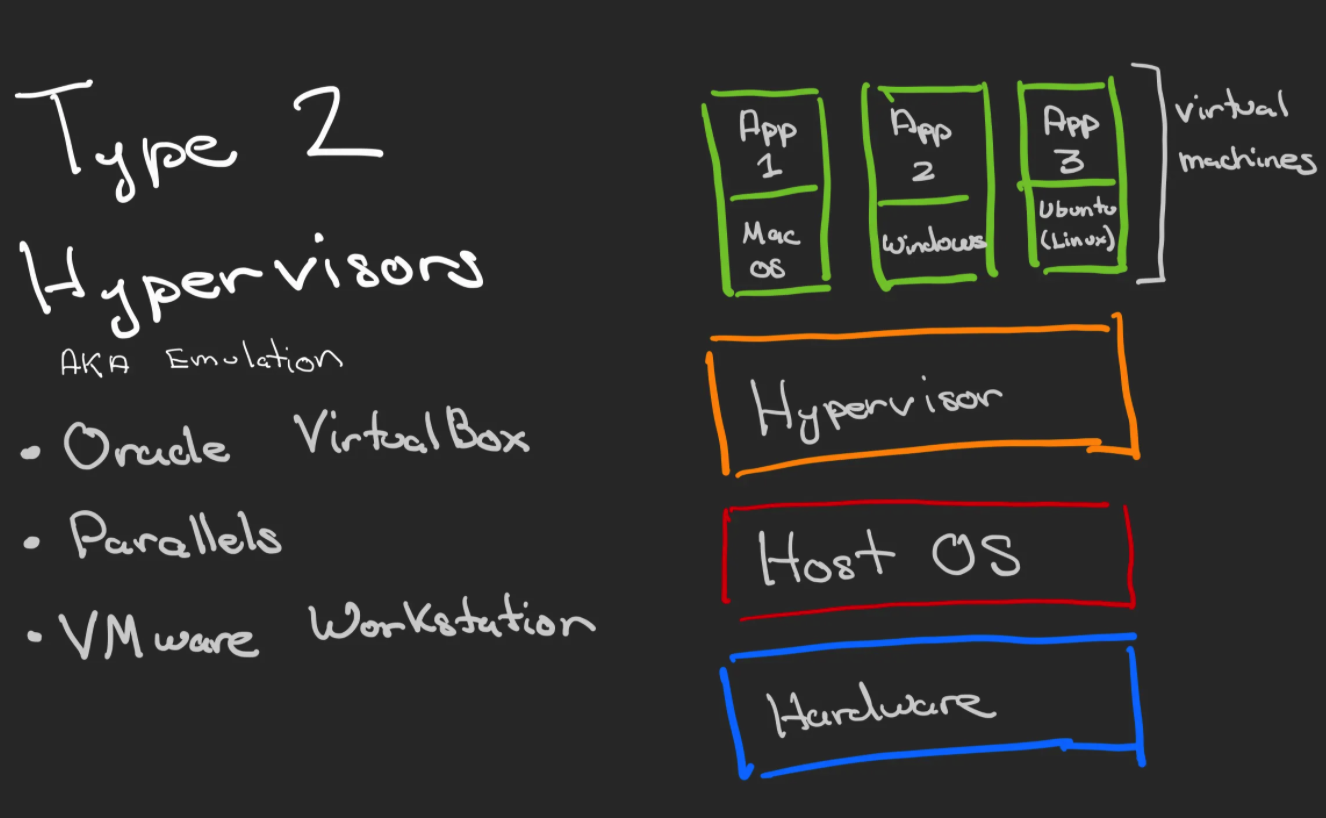 Type 2
Hypervisors
AKA Emulation
• Oracle VirtualBox
• Parallels
• VMware Workstation
App
1
Mac
OS
App
2
Windows
App
3
Ubuntu
(Linux)
virtual
machines
Hypervisor
Host OS
Hardware